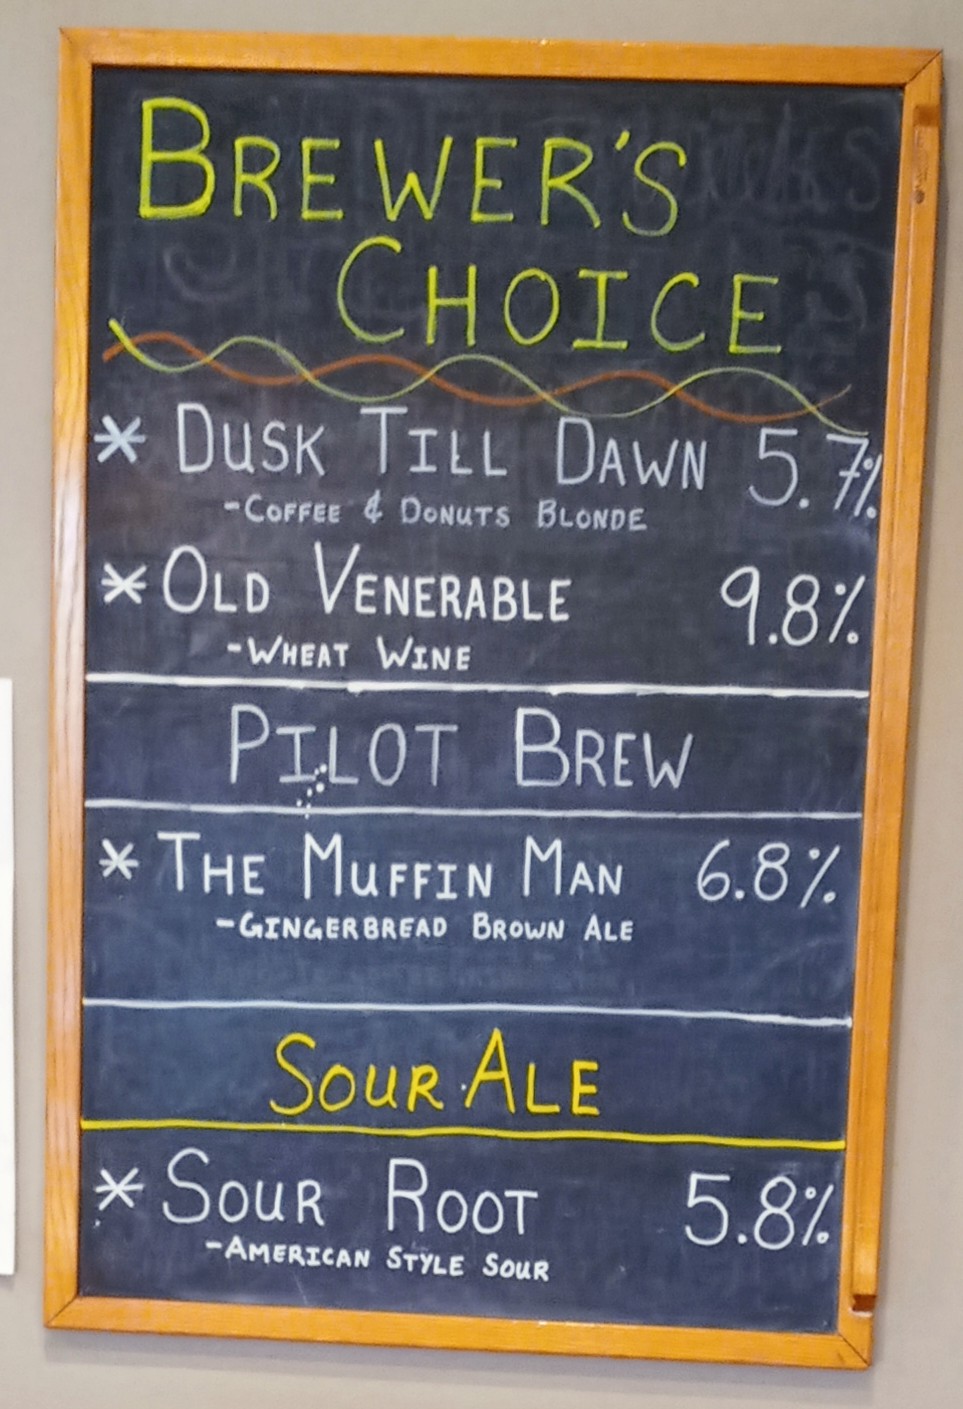 BREWER'S
CHOICE
* DUSK TILL DAWN 5.7%
-COFFEE & DONUTS BLONDE
* OLD VENERABLE 9.8%
-WHEAT WINE
PILOT BREW
* THE MUFFIN MAN 6.8%
-GINGERBREAD BROWN ALE
SOUR ALE
* SOUR ROOT 5.8%
-AMERICAN STYLE SOUR